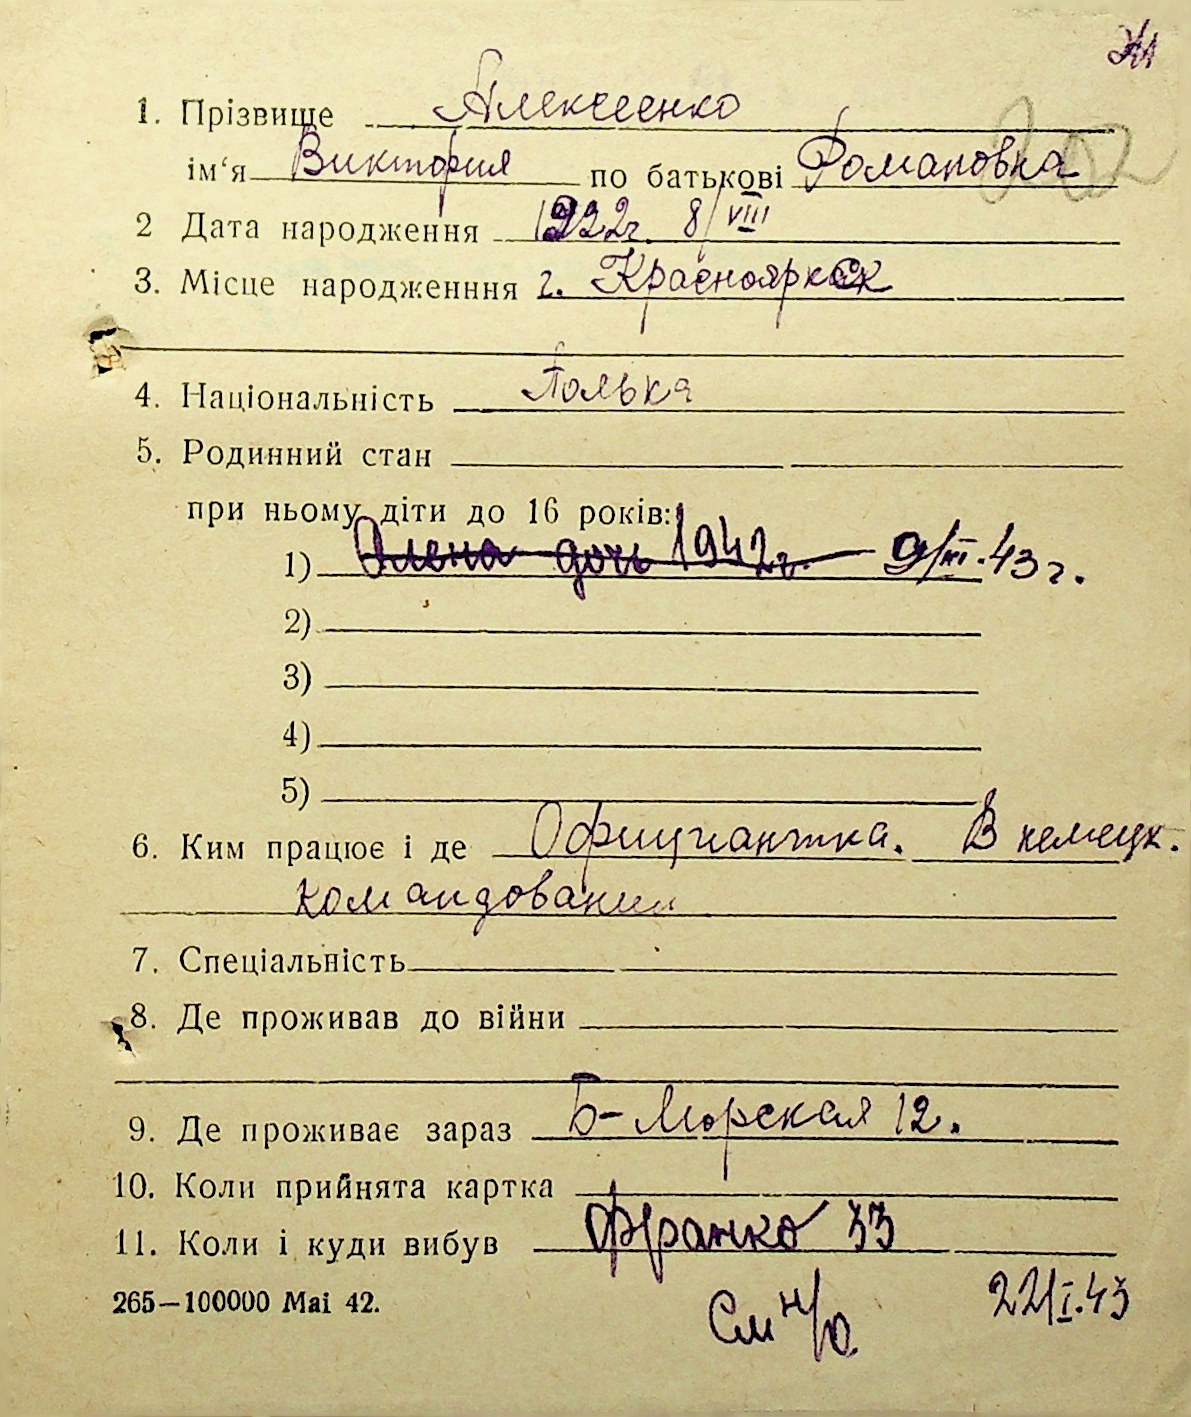 1. Прізвище Алексеенко
ім‘я Виктория по батькові Романовна
2 Дата народження 1922г. 8/VIII
3. Місце народженння г. Краснояркск
4. Національність Полька
5. Родинний стан
при ньому діти до 16 років:
1) Элена дочь 1942г. 9/III.43г.
2)
3)
4)
5)
6. Ким працює і де Официантка. В немецк.
командовании
7. Спеціальність
8. Де проживав до війни
9. Де проживає зараз Б-Морская 12.
10. Коли прийнята картка
11. Коли і куди вибув Франко 33
265—100000 Mai 42.
См н/о 22/I.43